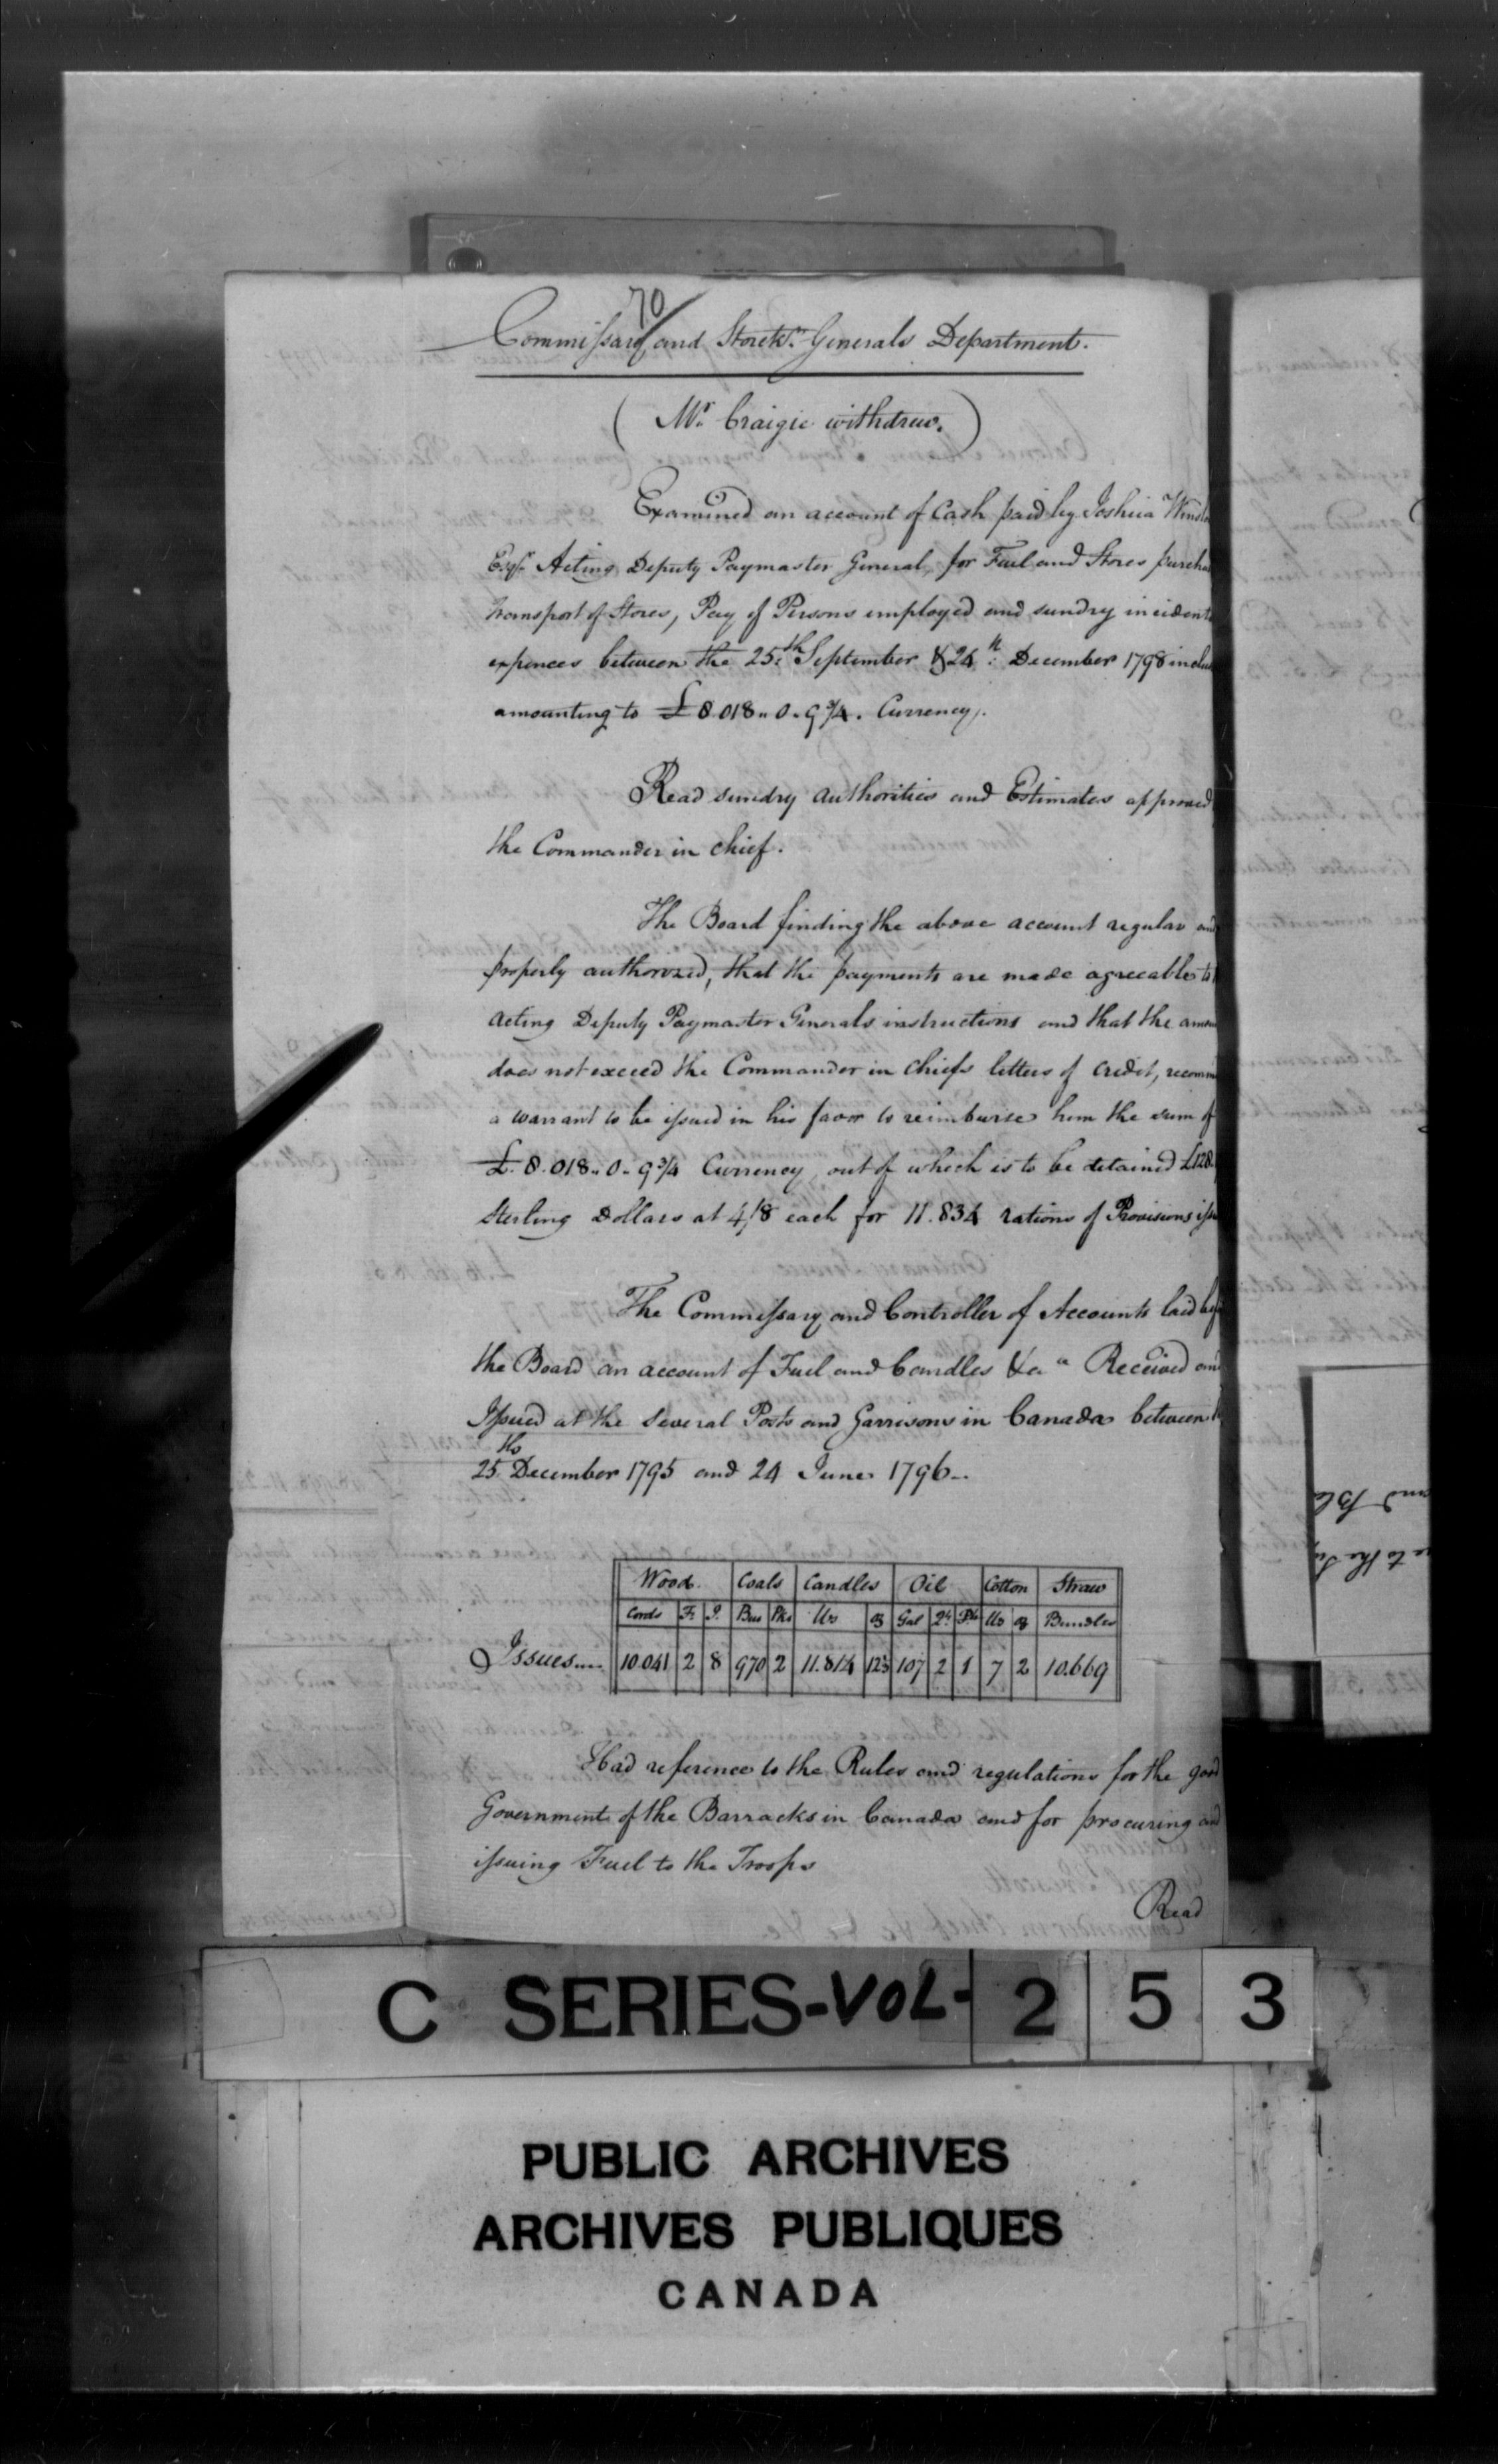 70
Commissary and Storek.rs Generals Department.
(Mr. Craigie withdrew.)
Examined an account of Cash paid by Joshua
Esqr. Acting Deputy Paymaster General, for Fuel and Stores
transport of Stores, Pay of Persons employed and sundry incident
expences between the 25th September & 24th December 1798
amounting to £8.018.. 0 .. 9 3/4. Currency.
Read sundry authorities and Estimates approved
the Commander in chief.
The Board finding the above account regular and
properly authorized, that the payments are made agreeable to
Acting Deputy Paymaster Generals instructions and that the
does not exceed the Commander in Chiefs letters of credit,
a warrant to be issued in his favor to reimburse him the sum of
£.8.018.. 0 .. 9 3/4 Currency, out of which is to be detained £128.
Sterling Dollars at 4/8 each for 11.834 rations of Provisions
The Commissary and Controller of Accounts laid
the Board an account of Fuel and Candles &ca Received and
Issued at the several Posts and Garrisons in Canada between
25th December 1795 and 24 June 1796..
Wood. Coals Candles Oil Cotton Straw
Cords F. I. Bus Pks lbs oz Gal Qt. Pts lbs oz Bundles
Issues.... 10.041 2 8 970 2 11.814 12½ 107 2 1 7 2 10.669
Had reference to the Rules and regulations for the good
Government of the Barracks in Canada and for procuring and
issuing Fuel to the Troops
Read
C SERIES-VOL- 2 5 3
PUBLIC ARCHIVES
ARCHIVES PUBLIQUES
CANADA